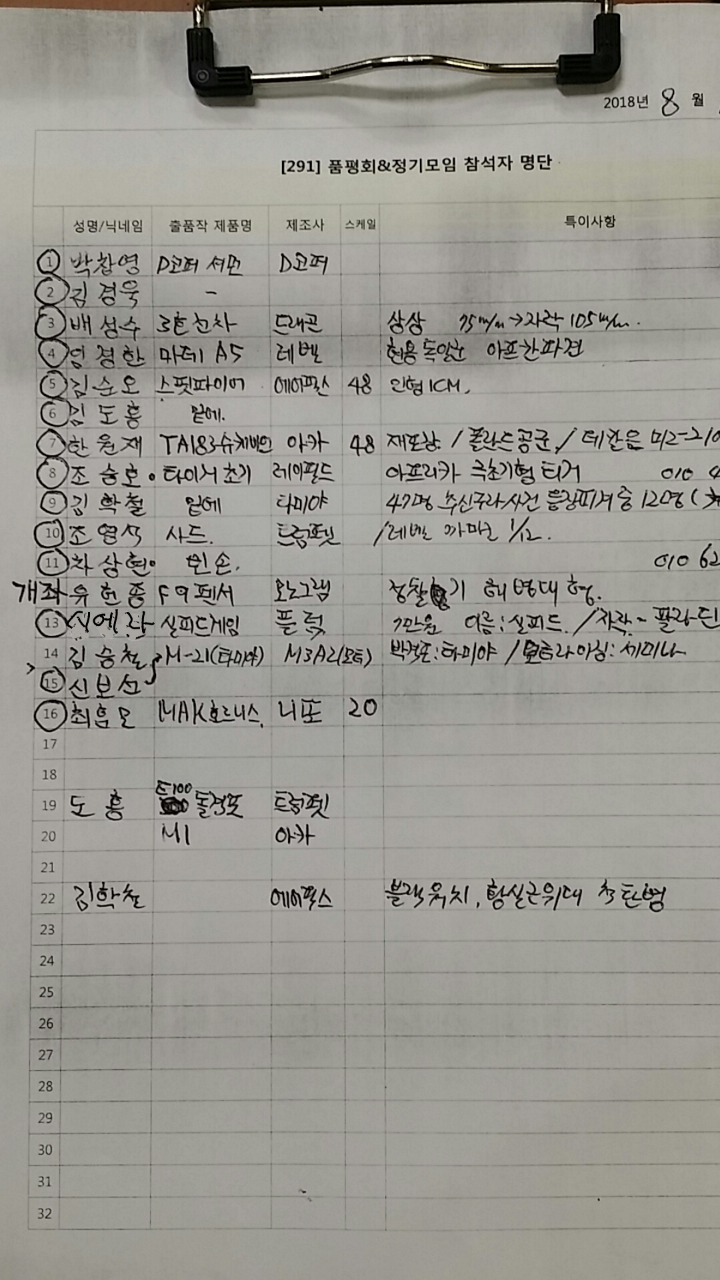 2018년 8 월
[291] 품평회&정기모임 참석자 명단
성명/닉네임 출품작 제품명 제조사 스케일 특이사항
1 박찬영 D코퍼 D코퍼
2 김경욱 -
3 배성수 3호전차 드래곤 상상 75m/m→자작 105m/m.
4 엄경한 마더 A5 레벨 현용독일군 아프간파견
5 김순오 스핏파이어 에어픽스 48 인형ICM,
6 김도흥 밑에.
7 한원재 TA183 아카 48 재포장 / 폴란드공군 /
8 조승호 타이거초기 레이필드 아프리카 극초기형 티거 010 4
9 김학철 밑에 타미야 47명 중 120명
10 조영식 사드. 트럼펫 /레벨 1/12.
11 차상현 빈손. 010 62
개좌 유헌종 F9팬서 모노그램 정찰기 해병대형.
13 실피드게임 플럼 이름:실피드. /자작-팔라딘
14 김승철 M-21(타미야) M3A2(모트) 박격포:타미야 / 세미나
15 신보선
16 최흠모 MAK호르니스, 니또 20
17
18
19 도흥 E100 돌격포 트럼펫
20 M1 아카
21
22 김학철 에어픽스 블랙워치, 황실근위대 척탄병
23
24
25
26
27
28
29
30
31
32